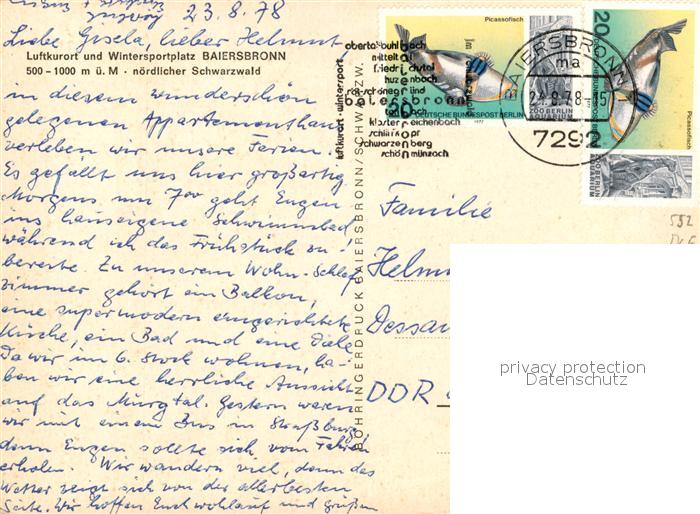 23.8.78
Liebe Gisela, lieber Helmut,
Luftkurort und Wintersportplatz BAIERSBRONN
500 – 1000 m ü. M · nördlicher Schwarzwald
in diesem wunderschön
gelegenen Appartementhaus
verleben wir unsere Ferien.
Es gefällt uns hier großartig
Morgens um 7°° geht Eugen
ins hauseigene Schwimmbad
während ich das Frühstück zu-
bereite. Zu unserem Wohn-Schlaf
zimmer gehört ein Balkon,
eine supermodern eingerichtete
Küche, ein Bad und eine Diele
Da wir im 6. Stock wohnen, ha-
ben wir eine herrliche Aussicht
auf das Murgtal. Gestern waren
wir mit einem Bus in Straßburg
denn Eugen sollte sich vom Fahren
erholen. Wir wandern viel, denn das
Wetter zeigt sich von der allerbesten
Seite. Wir hoffen Euch wohlauf und grüßen
BÖHRINGERDRUCK BAIERSBRONN/SCHWARZW.
luftkurort · wintersport
baiersbronn
obertal buhlbach
mitteltal
friedrichstal
huzenbach
röt-schönegründ
baiersbronn
tonbach
klosterreichenbach
schliffkopf
schwarzenberg
schönmünzach
Picassofisch
20
DEUTSCHE BUNDESPOST BERLIN
1977
ZOO BERLIN
AQUARIUM
BAIERSBRONN 1
ma
24.8.78-15
7292
Picassofisch
20
DEUTSCHE BUNDESPOST BERLIN
ZOO BERLIN
AQUARIUM
552
Familie
Helmu
Dessau
DDR
privacy protection
Datenschutz